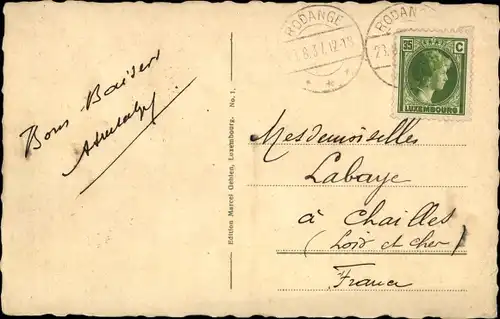 Bons Baisers
Edition Marcel Gehlen, Luxembourg. No. 1.
RODANGE
RODANGE
35 C
LUXEMBOURG
Mesdemoiselles
Labaye
à Chailles
(Loir et Cher)
France